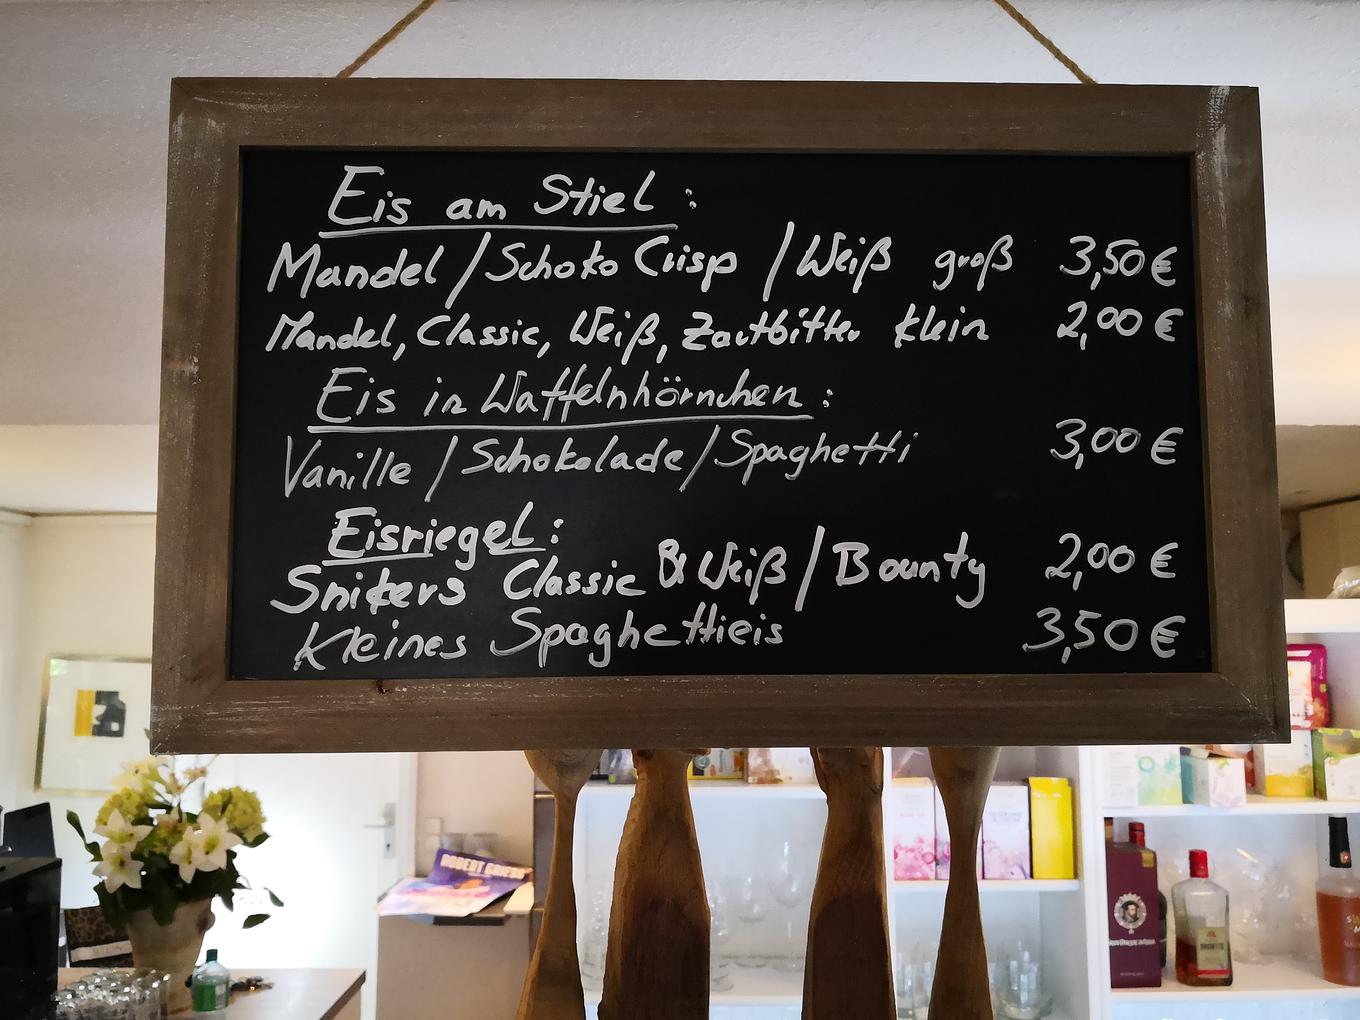 Eis am Stiel :
Mandel / Schoko Crisp / Weiß groß 3,50 €
Mandel, Classic, Weiß, Zartbitter klein 2,00 €
Eis in Waffelnhörnchen :
Vanille / Schokolade / Spaghetti 3,00 €
Eisriegel :
Snikers Classic & Weiß / Bounty 2,00 €
Kleines Spaghettieis 3,50 €
ROBERT